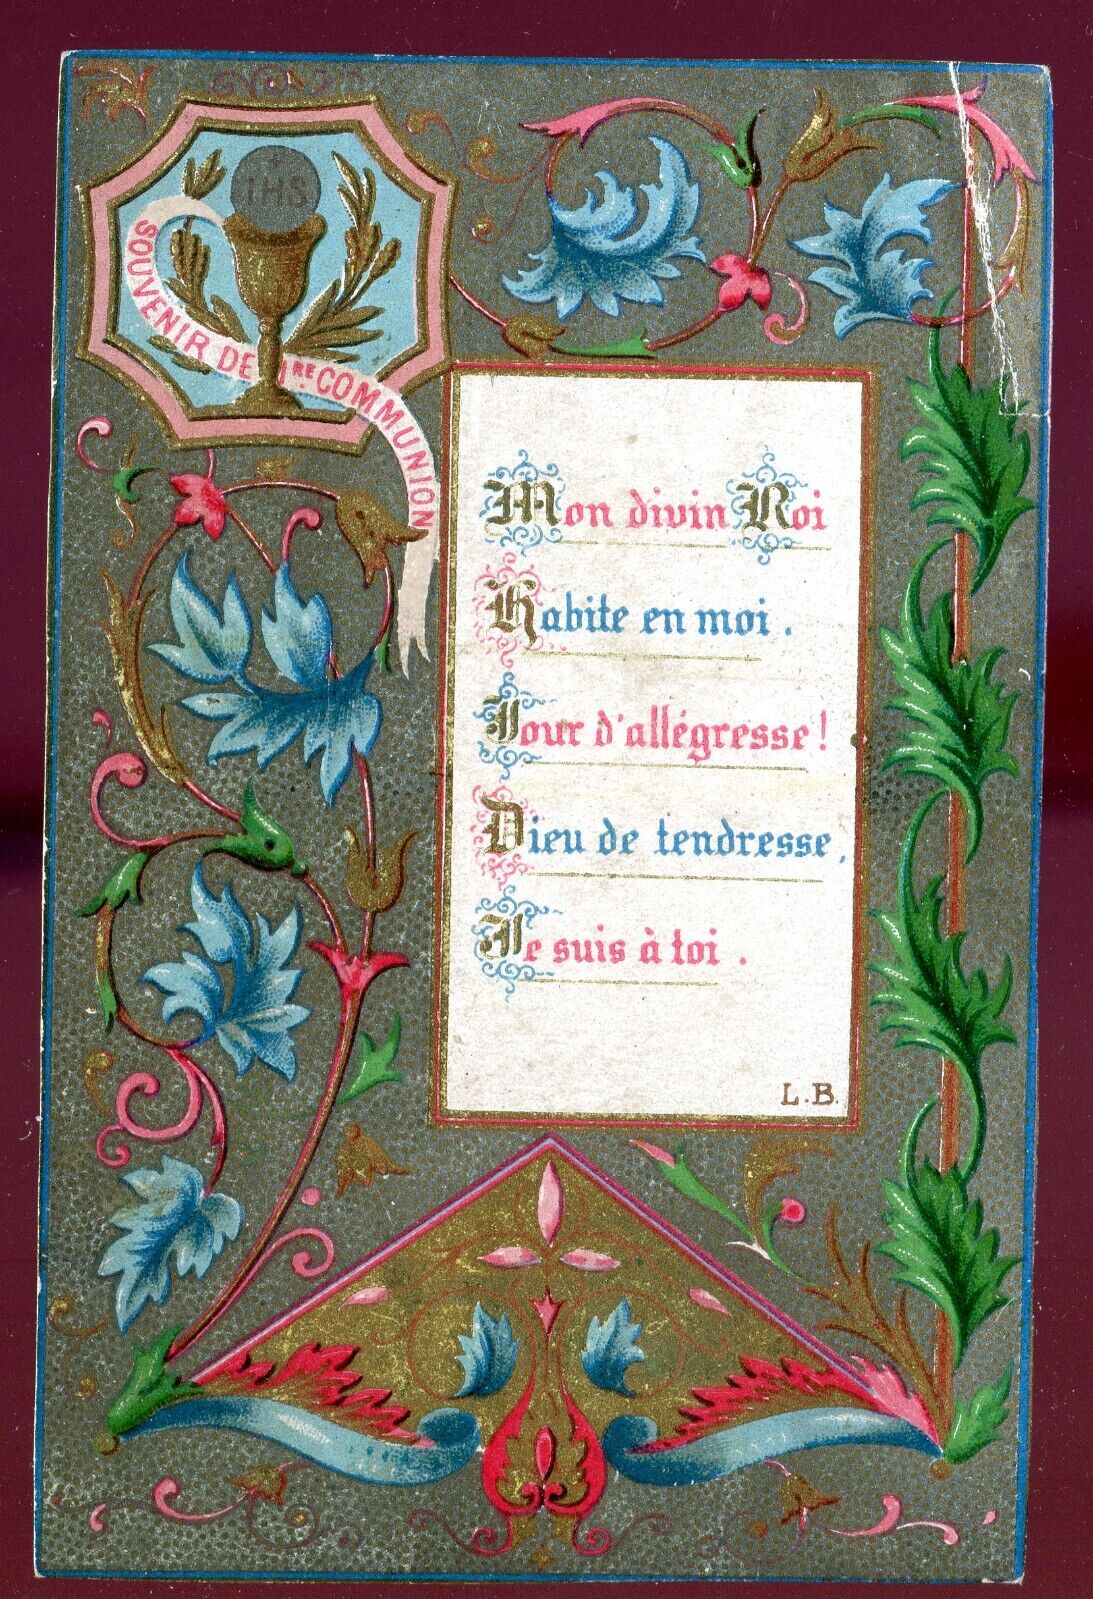 IHS
SOUVENIR DE 1RE COMMUNION
Mon divin Roi
Habite en moi.
Jour d'allégresse!
Dieu de tendresse,
Je suis à toi.
L.B.